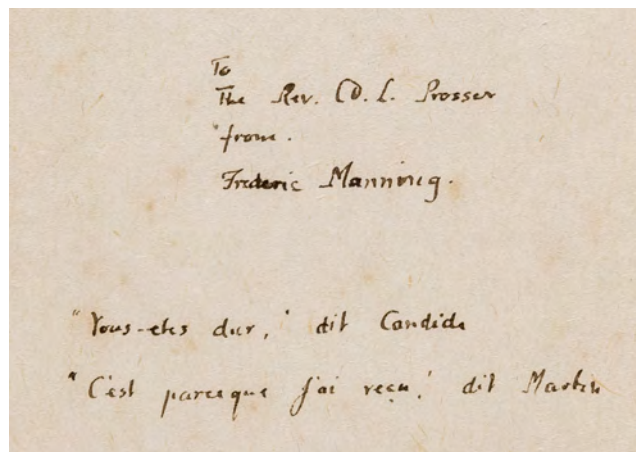 To
The Rev. D. L. Prosser
from.
Frederic Manning.
"Vous-etes dur,' dit Candide
"C'est parceque j'ai reçu,' dit Martin